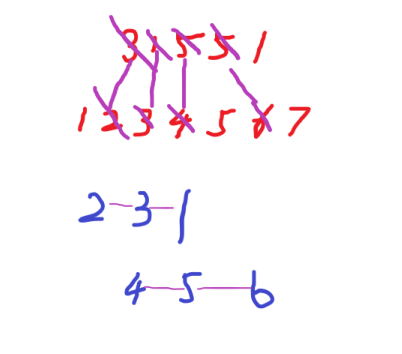 3 1 5 5 1
1 2 3 4 5 6 7
2 3 1
4 5 6